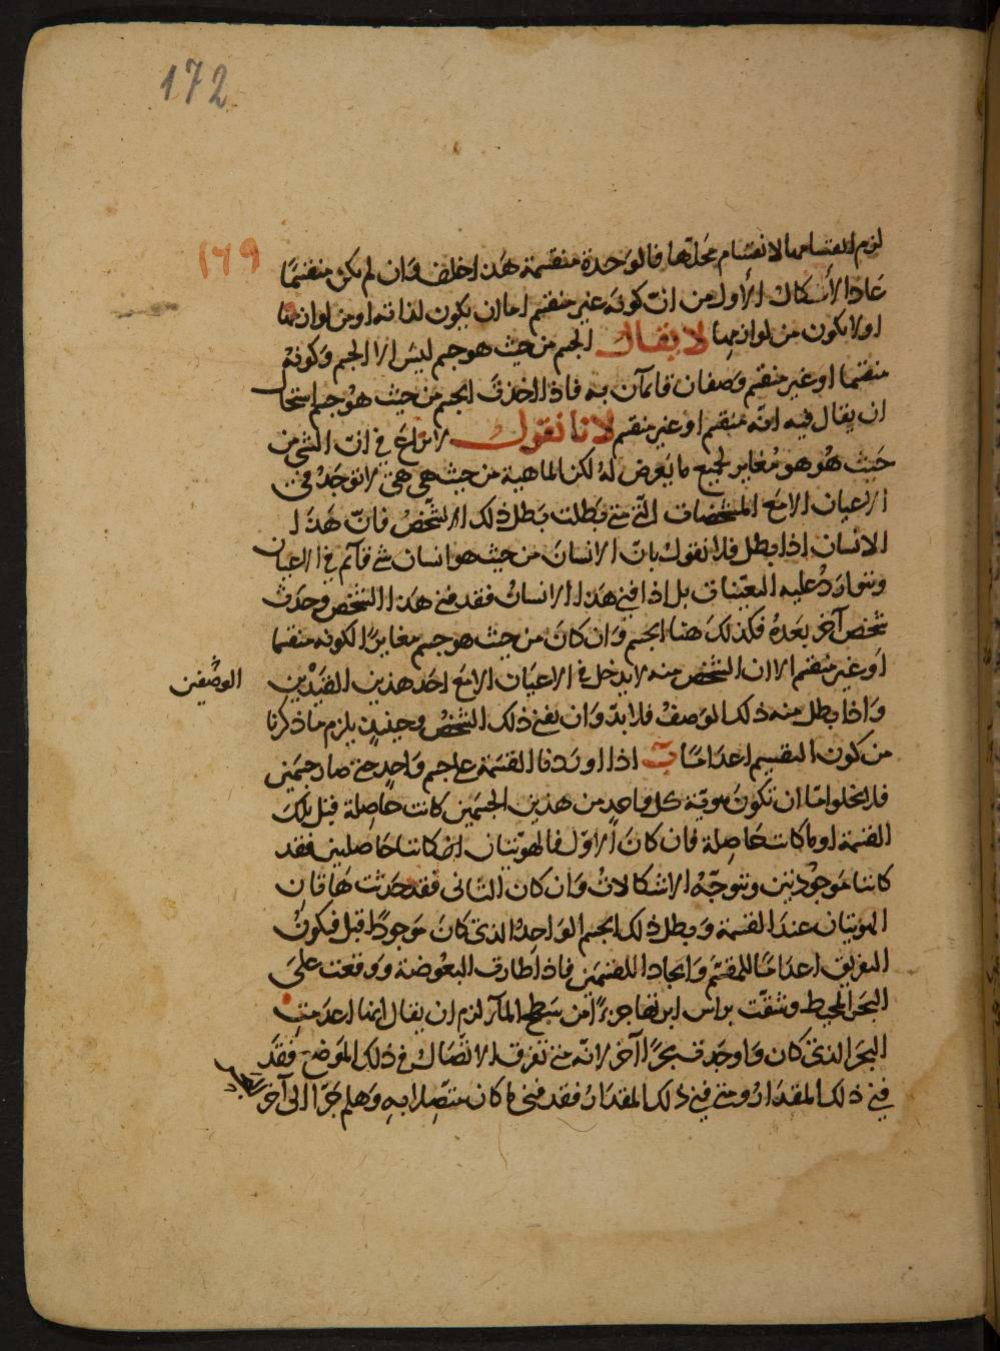 172
١٦٩
لزم انقسامها لانقسام محلها فالوحدة منقسمة هذا خلف وان لم يكن منقسما
عاد الاشكال الأول من ان كونه غير منقسم اما ان يكون لذاته او من لوازمها
او لا يكون من لوازمها لا يقال الجسم من حيث هو جسم ليس الا الجسم وكونه
منقسما او غير منقسم وصفان قائمان به فاذا اخذت الجسم من حيث هو جسم استحال
ان يقال فيه انه منقسم او غير منقسم لانا نقول لا نزاع في ان الشي من
حيث هو هو مغاير لجميع ما يعرض له لكن الماهية من حيث هي هي لا توجد في
الاعيان الا مع المشخصات التي متى بطلت بطل ذلك الشخص فان هذا
الانسان اذا بطل فلا نقول بان الانسان من حيث هو انسان شي قائم في الاعيان
وتتوارد عليه التعينات بل اذا فني هذا الانسان فقد فني هذا الشخص وحدث
شخص آخر بعده فكذلك هنا الجسم وان كان من حيث هو جسم مغايرا لكونه منقسما
او غير منقسم الا ان الشخص منه لا يدخل في الاعيان الا مع احد هذين القيدين
الوصفين
واذا بطل منه ذلك الوصف فلا بد وان يفنى ذلك الشخص وحينئذ يلزم ما ذكرنا
من كون التقسيم اعداما ب اذا اوردنا القسمة على جسم واحد حتى صار جسمين
فلا يخلو اما ان تكون هوية كل واحد من هذين الجسمين كانت حاصلة قبل تلك
القسمة او ما كانت حاصلة فان كان الاول فالهويتان اذ كانتا حاصلتين فقد
كانتا موجودتين وتتوجه الاشكالات وان كان الثاني فقد حدثت هاتان
الهويتان عند القسمة وبطل ذلك الجسم الواحد الذي كان موجودا قبل فيكون
التفريق اعداما للمقسم وايجادا للقسمين فاذا طارت البعوضة ووقعت على
البحر المحيط وشقت براس ابرتها جزءا من سطح الماء لزم ان يقال انها اعدمت
البحر الذي كان واوجدت بحرا آخر لانه متى تفرق الاتصال في ذلك الموضع فقد
فني ذلك المقدار ومتى فني ذلك المقدار فقد فني ما كان متصلا به وهلم جرا الى آخر